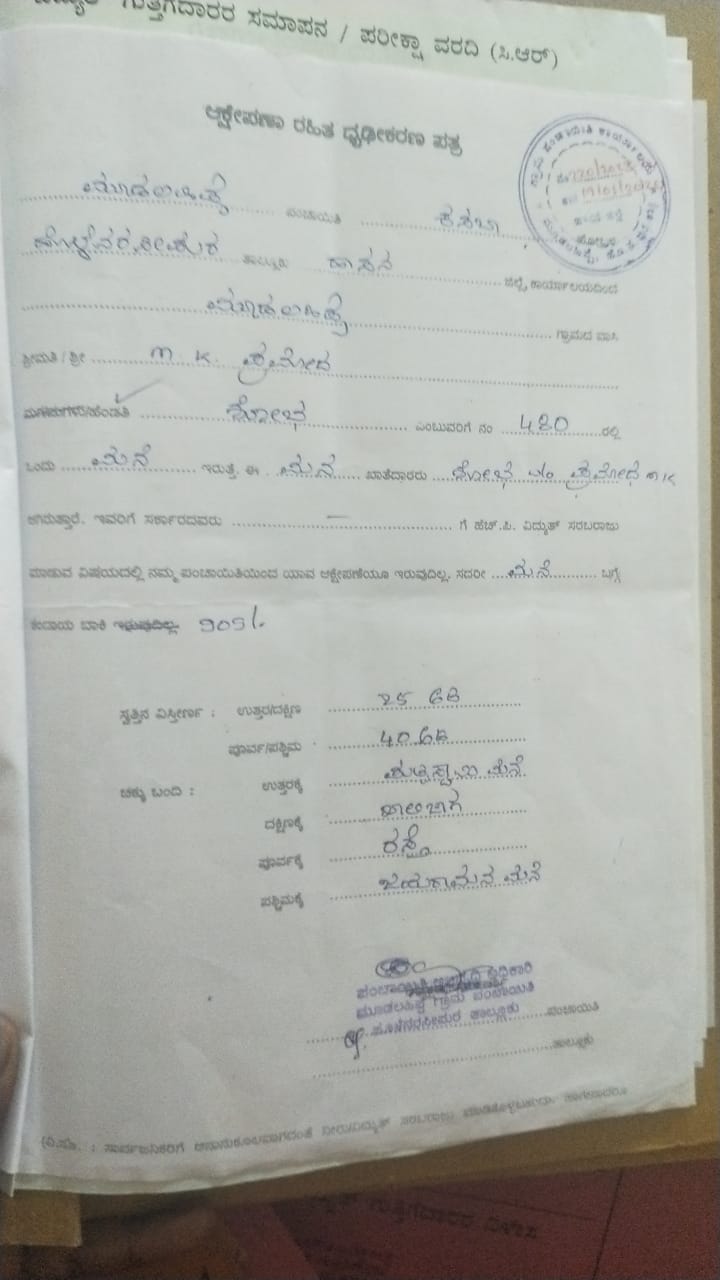 ಗುತ್ತಿಗೆದಾರರ ಸಮಾಪನ / ಪರೀಕ್ಷಾ ವರದಿ (ಸಿ.ಆರ್)
ಆಕ್ಷೇಪಣಾ ರಹಿತ ಧೃಢೀಕರಣ ಪತ್ರ
ಮೂಡಲಹಿಪ್ಪೆ ಪಂಚಾಯಿತಿ ಕಸಬಾ
ಹೊಳೆನರಸೀಪುರ ತಾಲ್ಲೂಕು ಹಾಸನ ಜಿಲ್ಲೆ ಕಾರ್ಯಾಲಯದಿಂದ
ಮೂಡಲಹಿಪ್ಪೆ ಗ್ರಾಮದ ವಾಸಿ
ಶ್ರೀಮತಿ / ಶ್ರೀ M K. ಪ್ರಮೋದ
ಮಕ್ಕಳುಗಳು/ಹೆಂಡತಿ ಶೋಭ ಎಂಬುವರಿಗೆ ನಂ 480 ರಲ್ಲಿ
ಒಂದು ಮನೆ ಇರುತ್ತೆ. ಈ ಮನೆ ಖಾತೆದಾರರು ಶೋಭ w/o ಪ್ರಮೋದ M K
ಆಗಿರುತ್ತಾರೆ. ಇವರಿಗೆ ಸರ್ಕಾರದವರು ಗೆ ಹೆಚ್.ಪಿ. ವಿದ್ಯುತ್ ಸರಬರಾಜು
ಮಾಡುವ ವಿಷಯದಲ್ಲಿ ನಮ್ಮ ಪಂಚಾಯಿತಿಯಿಂದ ಯಾವ ಆಕ್ಷೇಪಣೆಯೂ ಇರುವುದಿಲ್ಲ. ಸದರೀ ಮನೆ ಬಗ್ಗೆ
ಕಂದಾಯ ಬಾಕಿ ಇರುವುದಿಲ್ಲ.
ಸ್ವತ್ತಿನ ವಿಸ್ತೀರ್ಣ : ಉತ್ತರ/ದಕ್ಷಿಣ 25
ಪೂರ್ವ/ಪಶ್ಚಿಮ 40
ಚಕ್ಕು ಬಂದಿ : ಉತ್ತರಕ್ಕೆ ಮನೆ
ದಕ್ಷಿಣಕ್ಕೆ ಖಾಲಿಜಾಗ
ಪೂರ್ವಕ್ಕೆ ರಸ್ತೆ
ಪಶ್ಚಿಮಕ್ಕೆ ಜಯರಾಮನ ಮನೆ
ಪಂಚಾಯಿತಿ ಅಭಿವೃದ್ಧಿ ಅಧಿಕಾರಿ
ಮೂಡಲಹಿಪ್ಪೆ ಗ್ರಾಮ ಪಂಚಾಯಿತಿ
ಹೊಳೆನರಸೀಪುರ ತಾಲ್ಲೂಕು ಪಂಚಾಯಿತಿ
ತಾಲ್ಲೂಕು
(ವಿ.ಸೂ. : ಸಾರ್ವಜನಿಕರಿಗೆ ಅನಾನುಕೂಲವಾಗದಂತೆ ನೀರು/ವಿದ್ಯುತ್ ಸರಬರಾಜು ಮಾಡಿಕೊಳ್ಳಬಹುದು.